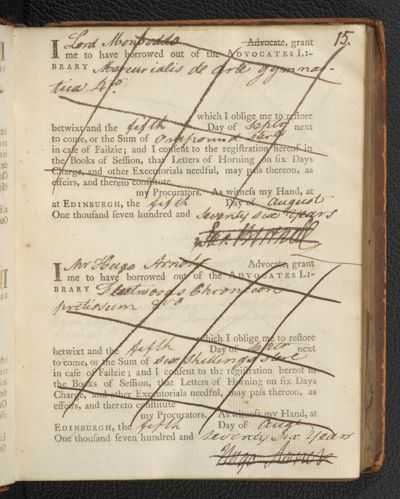 15.
I Lord Monboddo Advocate, grant
me to have borrowed out of the ADVOCATES LI-
BRARY Mercurialis de arte gymnas-
tica 4to
which I oblige me to reſtore
betwixt and the fifth Day of Septr next
to come, or the Sum of One pound Sterg
in caſe of Failzie; and I conſent to the regiſtration hereof in
the Books of Seſſion, that Letters of Horning on ſix Days
Charge, and other Executorials needful, may paſs thereon, as
effeirs, and thereto conſtitute
my Procurators. As witneſs my Hand, at
at EDINBURGH, the fifth Day of August
One thouſand ſeven hundred and Seventy six Years
I Mr Hugo Arnott Advocate, grant
me to have borrowed out of the ADVOCATES LI-
BRARY Fleetwoods Chronicon
pretiosum 8vo
which I oblige me to reſtore
betwixt and the fifth Day of Septr next
to come, or the Sum of six Shillings Ster
in caſe of Failzie; and I conſent to the regiſtration hereof in
the Books of Seſſion, that Letters of Horning on ſix Days
Charge, and other Executorials needful, may paſs thereon, as
effeirs, and thereto conſtitute
my Procurators. As witneſs my Hand, at
EDINBURGH, the fifth Day of Augt
One thouſand ſeven hundred and seventy Six Years
Hugo Arnot